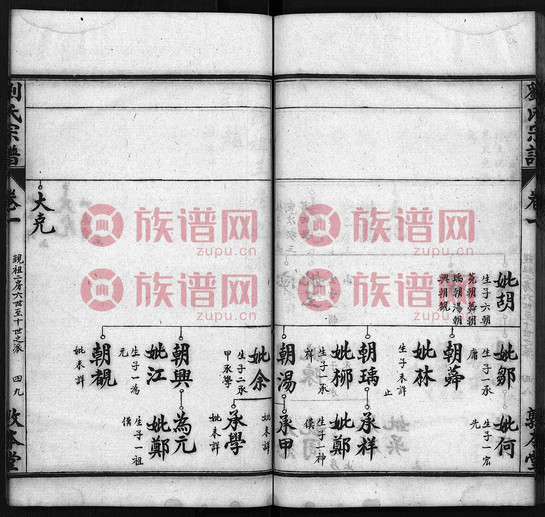 劉氏宗譜
卷一
妣胡
生子六朝
堯朝舜朝
瑀朝湯朝
興朝覩
妣鄒
生子一承
庸
妣何
生子一宏
先
朝舜
妣林
生子未詳
止
朝瑀
承祥
妣柳
生子一承
祥
妣鄭
生子一神
保
朝湯
承甲
妣余
生子二承
甲承學
妣未詳
承學
妣未詳
朝興
為元
妣江
生子一為
元
妣鄭
生子一祖
朝覩
妣未詳
大克
劉氏宗譜
卷一
親祖二房六世至十世之派
四九
敦本堂
族谱网
zupu.cn